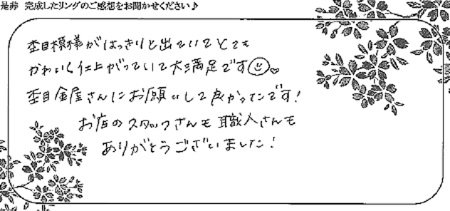 是非 完成したリングのご感想をお聞かせください♪
杢目模様がはっきりと出ていてとても
かわいく仕上がっていて大満足です
杢目金屋さんにお願いして良かったです!
お店のスタッフさんも職人さんも
ありがとうございました!